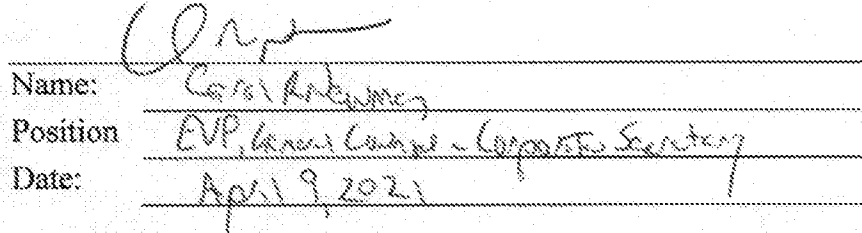 Name: Carol
Position EVP, General Counsel - Corporate Secretary
Date: April 9, 2021